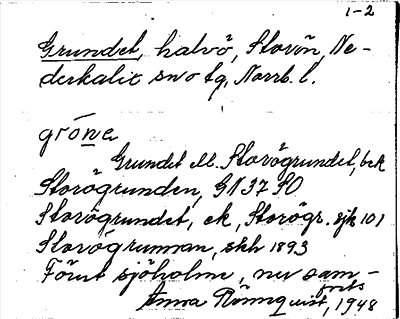 1-2
Grundet, halvö, Storön, Ne-
derkalix sn o tg, Norrb. l.
gróne
Grundet el. Storögrundet, bek
Storögrunden, GK 37 SO
Storögrundet, ek, Storögr. sjk 101
Storögrunnan, skh 1893
Förut sjöholme, nu sam-
Anna Rönnquist, 1948